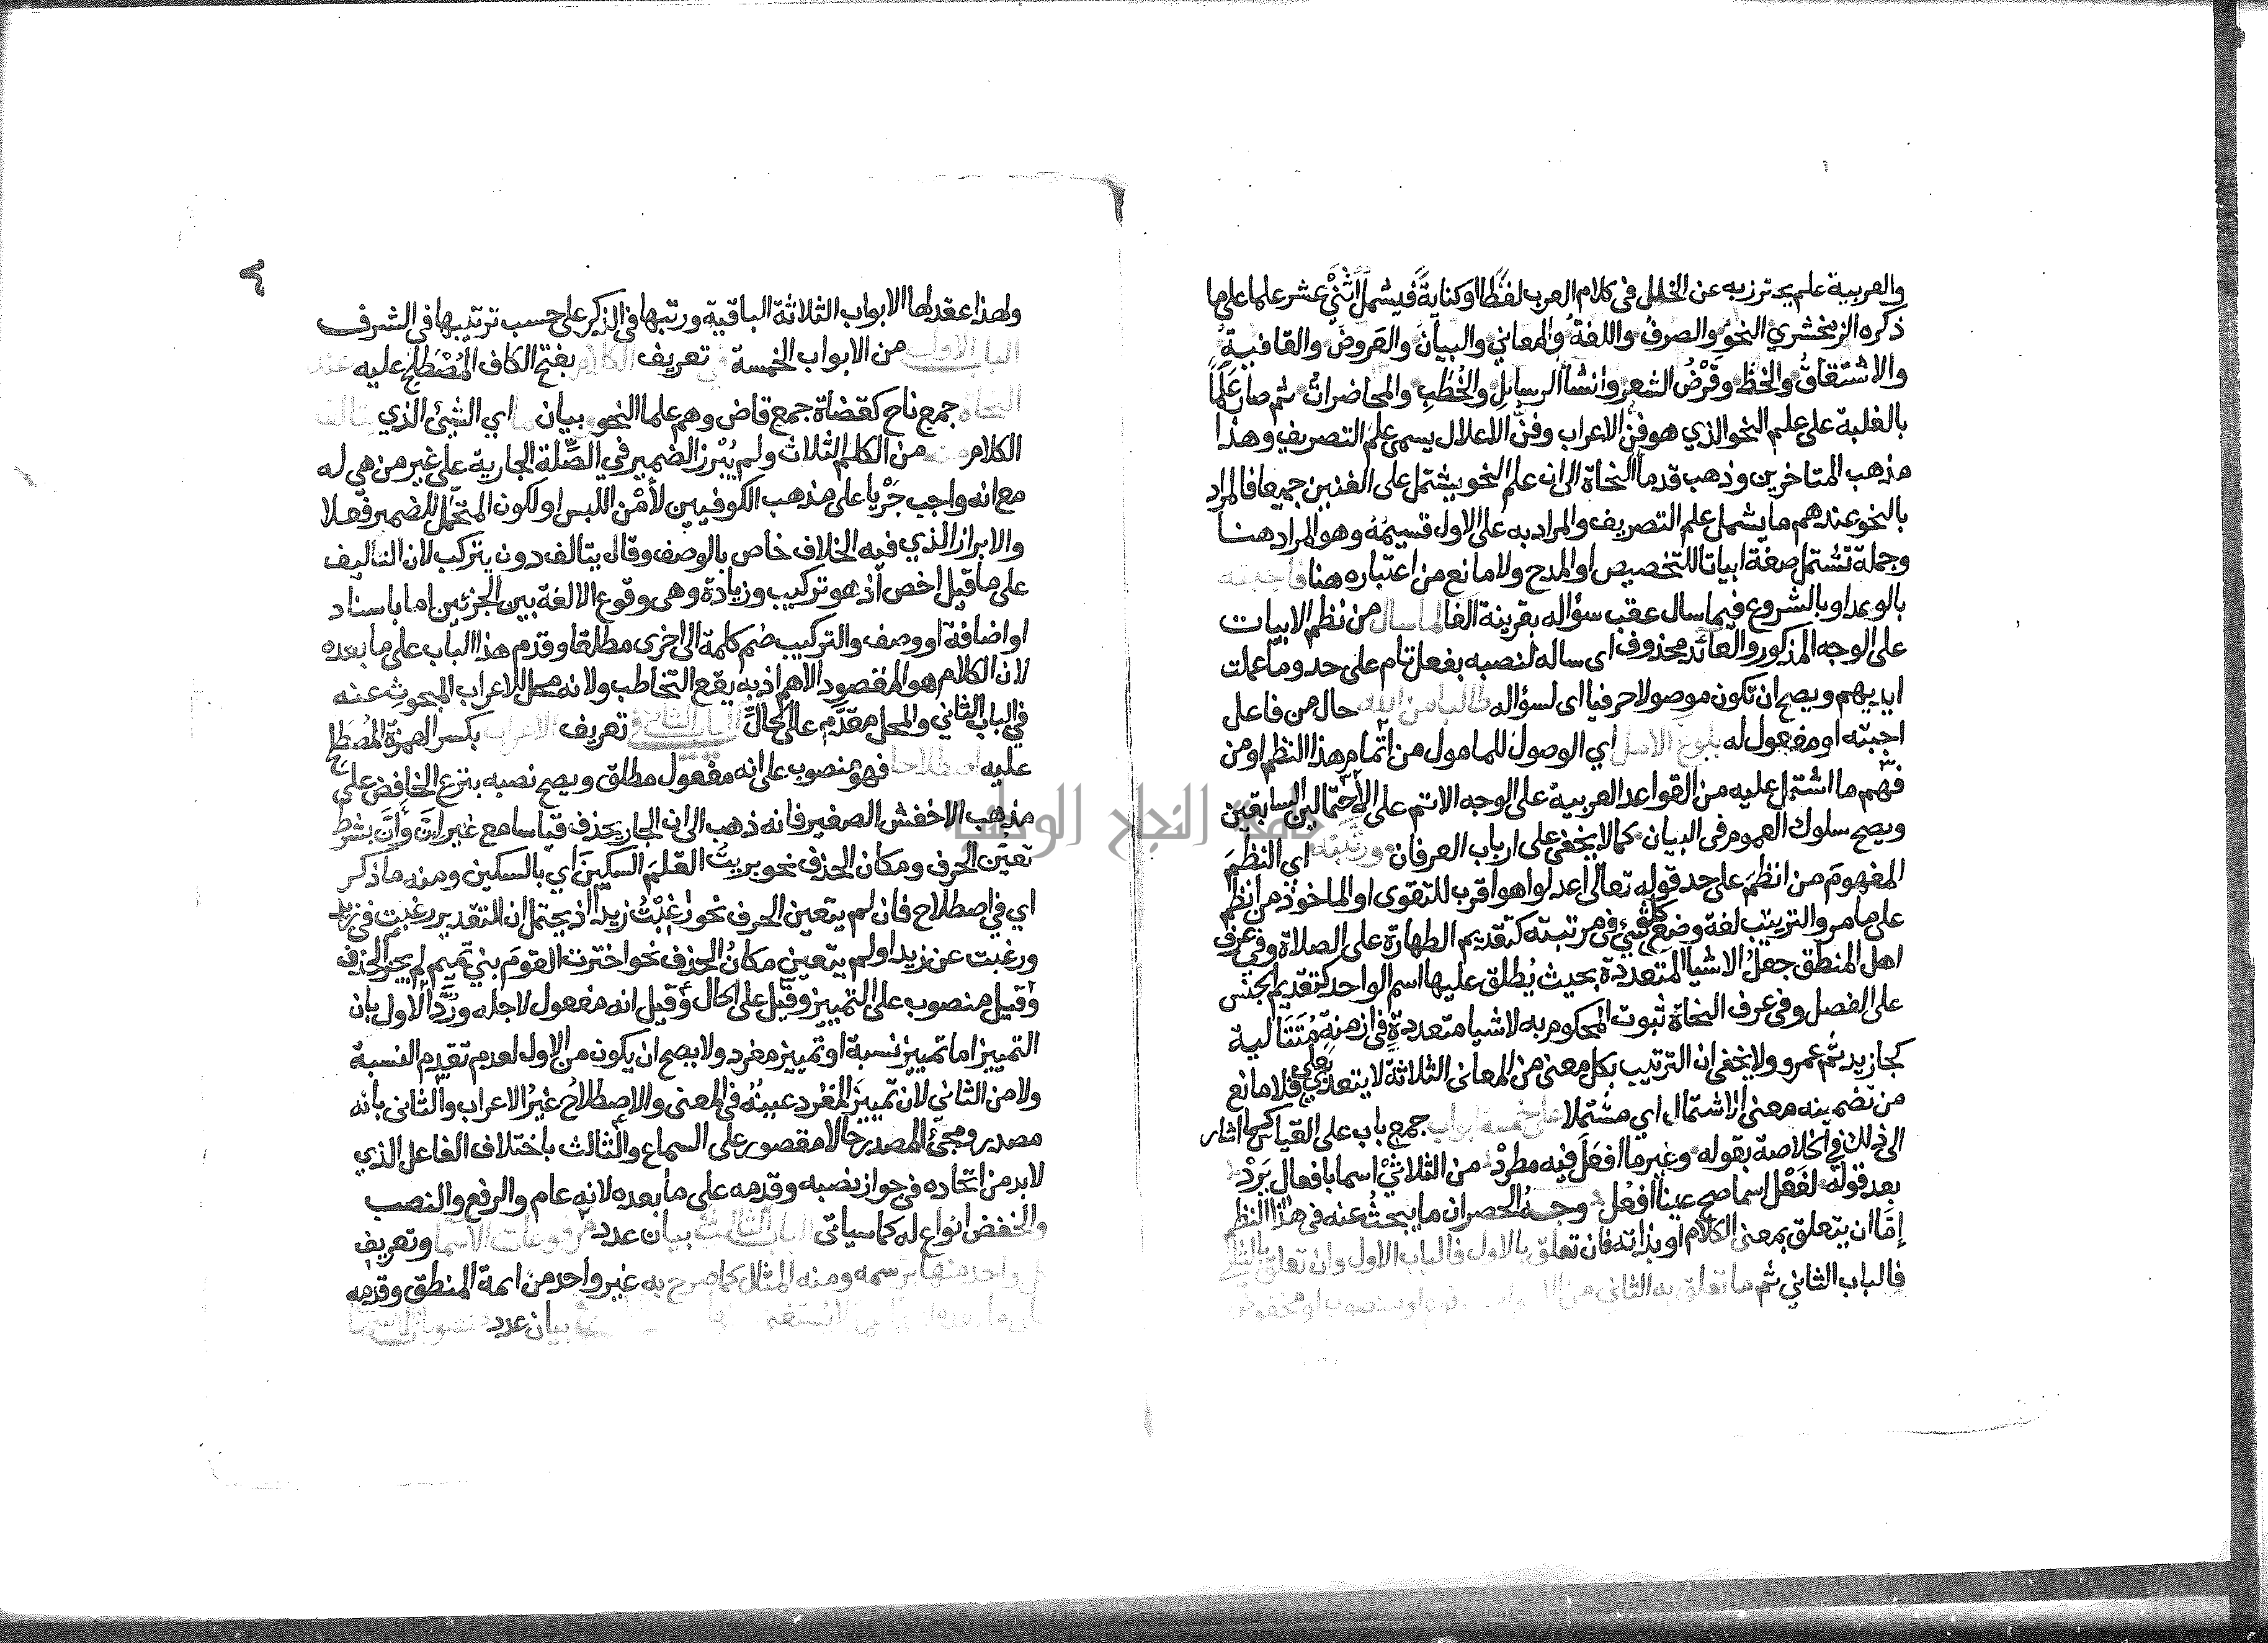 والعربية علم يحترز به عن الخلل في كلام العرب لفظا او كتابة فيشمل اثني عشر علما على ما
ذكره الزمخشري النحو والصرف واللغة والمعاني والبيان والعروض والقافية
والاشتقاق والخط وقرض الشعر وانشا الرسايل والخطب والمحاضرات ثم صار علما
بالغلبة على علم النحو الذي هو فن الاعراب وفن الاعلال يسمى علم التصريف وهذا
مذهب المتاخرين وذهب قدما النحاة الى ان علم النحو يشتمل على الفنين جميعا فالمراد
بالنحو عندهم ما يشمل علم التصريف والمراد به على الاول قسيمه وهو المراد هنا
وجملة تشتمل صفة ابياتا للتخصيص او المدح ولا مانع من اعتباره هنا فاجبته
بالوعد او بالشروع فيما سال عقب سؤاله بقرينة الفا لما سال من نظم الابيات
على الوجه المذكور والعائد محذوف اى ساله لنصبه بفعل تام على حد وما عملت
ايديهم ويصح ان تكون موصولا حرفيا اى لسؤاله طالبا من الله حال من فاعل
اجبته او مفعول له بلوغ الامل اي الوصول للمامول من اتمام هذا النظم او من
فهم ما اشتمل عليه من القواعد العربية على الوجه الاتم على الاحتمالين السابقين
ويصح سلوك العموم فى البيان كما لا يخفى على ارباب العرفان ورتبته اي النظم
المفهوم من انظم على حد قوله تعالى اعدلوا هو اقرب للتقوى او الماخوذ من انظم
على ما مر والترتيب لغة وضع كل شيء في مرتبته كتقديم الطهارة على الصلاة وفي عرف
اهل المنطق جعل الاشيا المتعددة بحيث يطلق عليها اسم الواحد كتقديم الجنس
على الفصل وفي عرف النحاة ثبوت المحكوم به لاشيا متعددة في ازمنة متتالية
كجا زيد ثم عمرو ولا يخفى ان الترتيب بكل معنى من المعاني الثلاثة لا يتعدى بعلى فلا مانع
من تضمينه معنى الاشتمال اي مشتملا على خمسة ابواب جمع باب على القياس كما اشار
الى ذلك في الخلاصة بقوله وغير ما افعل فيه مطرد من الثلاثي اسما بافعال يرد
بعد قوله لفعل اسما صح عينا افعل وجه الحصر ان ما يبحث عنه في هذا النظم
إما ان يتعلق بمعنى الكلام او بذاته فان تعلق بالاول فالباب الاول وان تعلق بالثاني
فالباب الثاني ثم ما تعلق به الثاني من
ولهذا عقد لها الابواب الثلاثة الباقية ورتبها في الذكر على حسب ترتيبها في الشرف
الباب الاول من الابواب الخمسة في تعريف الكلام بفتح الكاف المصطلح عليه عند
النحاة جمع ناح كقضاة جمع قاض وهم علما النحو وبيان ما اي الشيئ الذي يتالف
الكلام منه من الكلم الثلاث ولم يبرز الضمير في الصلة الجارية على غير من هي له
مع انه واجب جريا على مذهب الكوفيين لأمن اللبس او لكون المتحمل للضمير فعلا
والابراز الذي فيه الخلاف خاص بالوصف وقال يتالف دون يتركب لان التاليف
على ما قيل اخص اذ هو تركيب وزيادة وهي وقوع الالفة بين الجزئين اما باسناد
او اضافة او وصف والتركيب ضم كلمة الى اخرى مطلقا وقدم هذا الباب على ما بعده
لان الكلام هو المقصود الاهم اذ به يقع التخاطب ولانه محل للاعراب المبحوث عنه
في الباب الثاني والمحل مقدم على الحال الباب الثاني في تعريف الاعراب بكسر الهمزة المصطلح
عليه اصطلاحا فهو منصوب على انه مفعول مطلق ويصح نصبه بنزع الخافض على
مذهب الاخفش الصغير فانه ذهب الى ان الجار يحذف قياسا مع غير ان وأن بشرط
تعين الحرف ومكان الحذف نحو بريت القلم السكين اي بالسكين ومنه ما ذكر
اي في اصطلاح فان لم يتعين الحرف نحو رغبت زيدا اذ يحتمل ان التقدير رغبت في زيد
ورغبت عن زيد او لم يتعين مكان الحذف نحو اخترت القوم بني تميم لم يجز الحذف
وقيل منصوب على التمييز وقيل على الحال وقيل انه مفعول لاجله ورد الاول بان
التمييز اما تمييز نسبة او تمييز مفرد ولا يصح ان يكون من الاول لعدم تقديم النسبة
ولا من الثاني لان تمييز المفرد عينه في المعنى والاصطلاح غير الاعراب والثاني بانه
مصدر ومجئ المصدر حالا مقصور على السماع والثالث باختلاف الفاعل الذي
لا بد من اتحاده في جواز نصبه وقدمه على ما بعده لانه عام والرفع والنصب
والخفض انواع له كما سياتي الباب الثالث بيان عدد مرفوعات الاسما وتعريف
كل واحد منها برسمه ومنه المثال كما صرح به غير واحد من ايمة المنطق وقدمه
بيان عدد
جامعة النجاح الوطنية